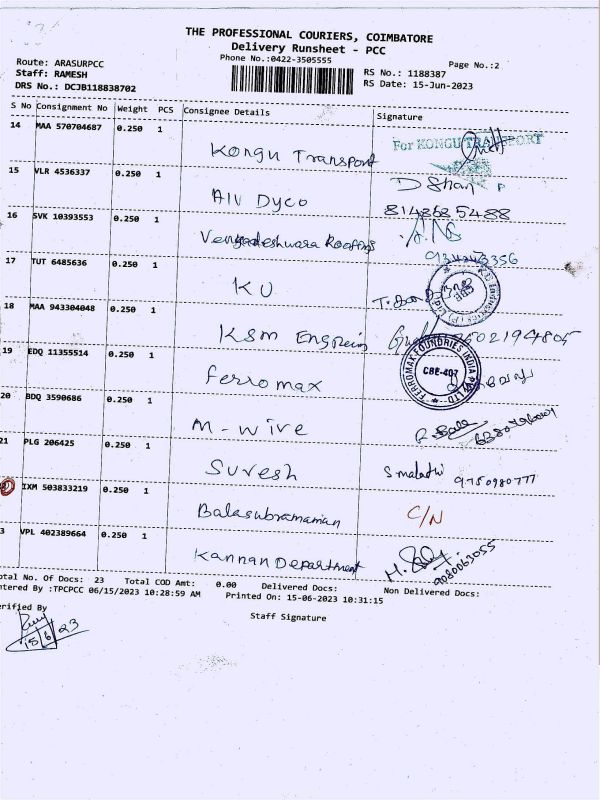 THE PROFESSIONAL COURIERS, COIMBATORE
Delivery Runsheet - PCC
Phone No.:0422-3505555
Page No.:2
Route: ARASURPCC
Staff: RAMESH
DRS No.: DCJB118838702
RS No.: 1188387
RS Date: 15-Jun-2023
S No Consignment No Weight PCS Consignee Details Signature
14 MAA 570704687 0.250 1 Kongu Transport For KONGU TRANSPORT
15 VLR 4536337 0.250 1 Alv Dyco D Shan
16 SVK 10393553 0.250 1 Vengadeshwara Roofings
17 TUT 6485636 0.250 1 KU
18 MAA 943304048 0.250 1 KSM
19 EDQ 11355514 0.250 1 Ferromax FERROMAX FOUNDRIES INDIA PVT LTD CBE-407
20 BDQ 3590686 0.250 1 M-wire
21 PLG 206425 0.250 1 Suresh S malathi 9750980777
IXM 503833219 0.250 1 Balasubramanian C/N
3 VPL 402389664 0.250 1 Kannan Department 9080063055
otal No. Of Docs: 23 Total COD Amt: 0.00 Delivered Docs: Non Delivered Docs:
ntered By :TPCPCC 06/15/2023 10:28:59 AM Printed On: 15-06-2023 10:31:15
erified By
Staff Signature
15/6/23